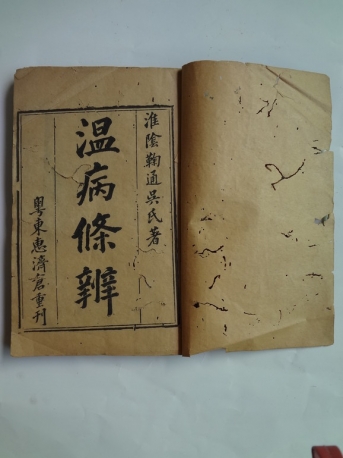 淮陰鞠通吳氏著
溫病條辨
粵東惠濟倉重刊